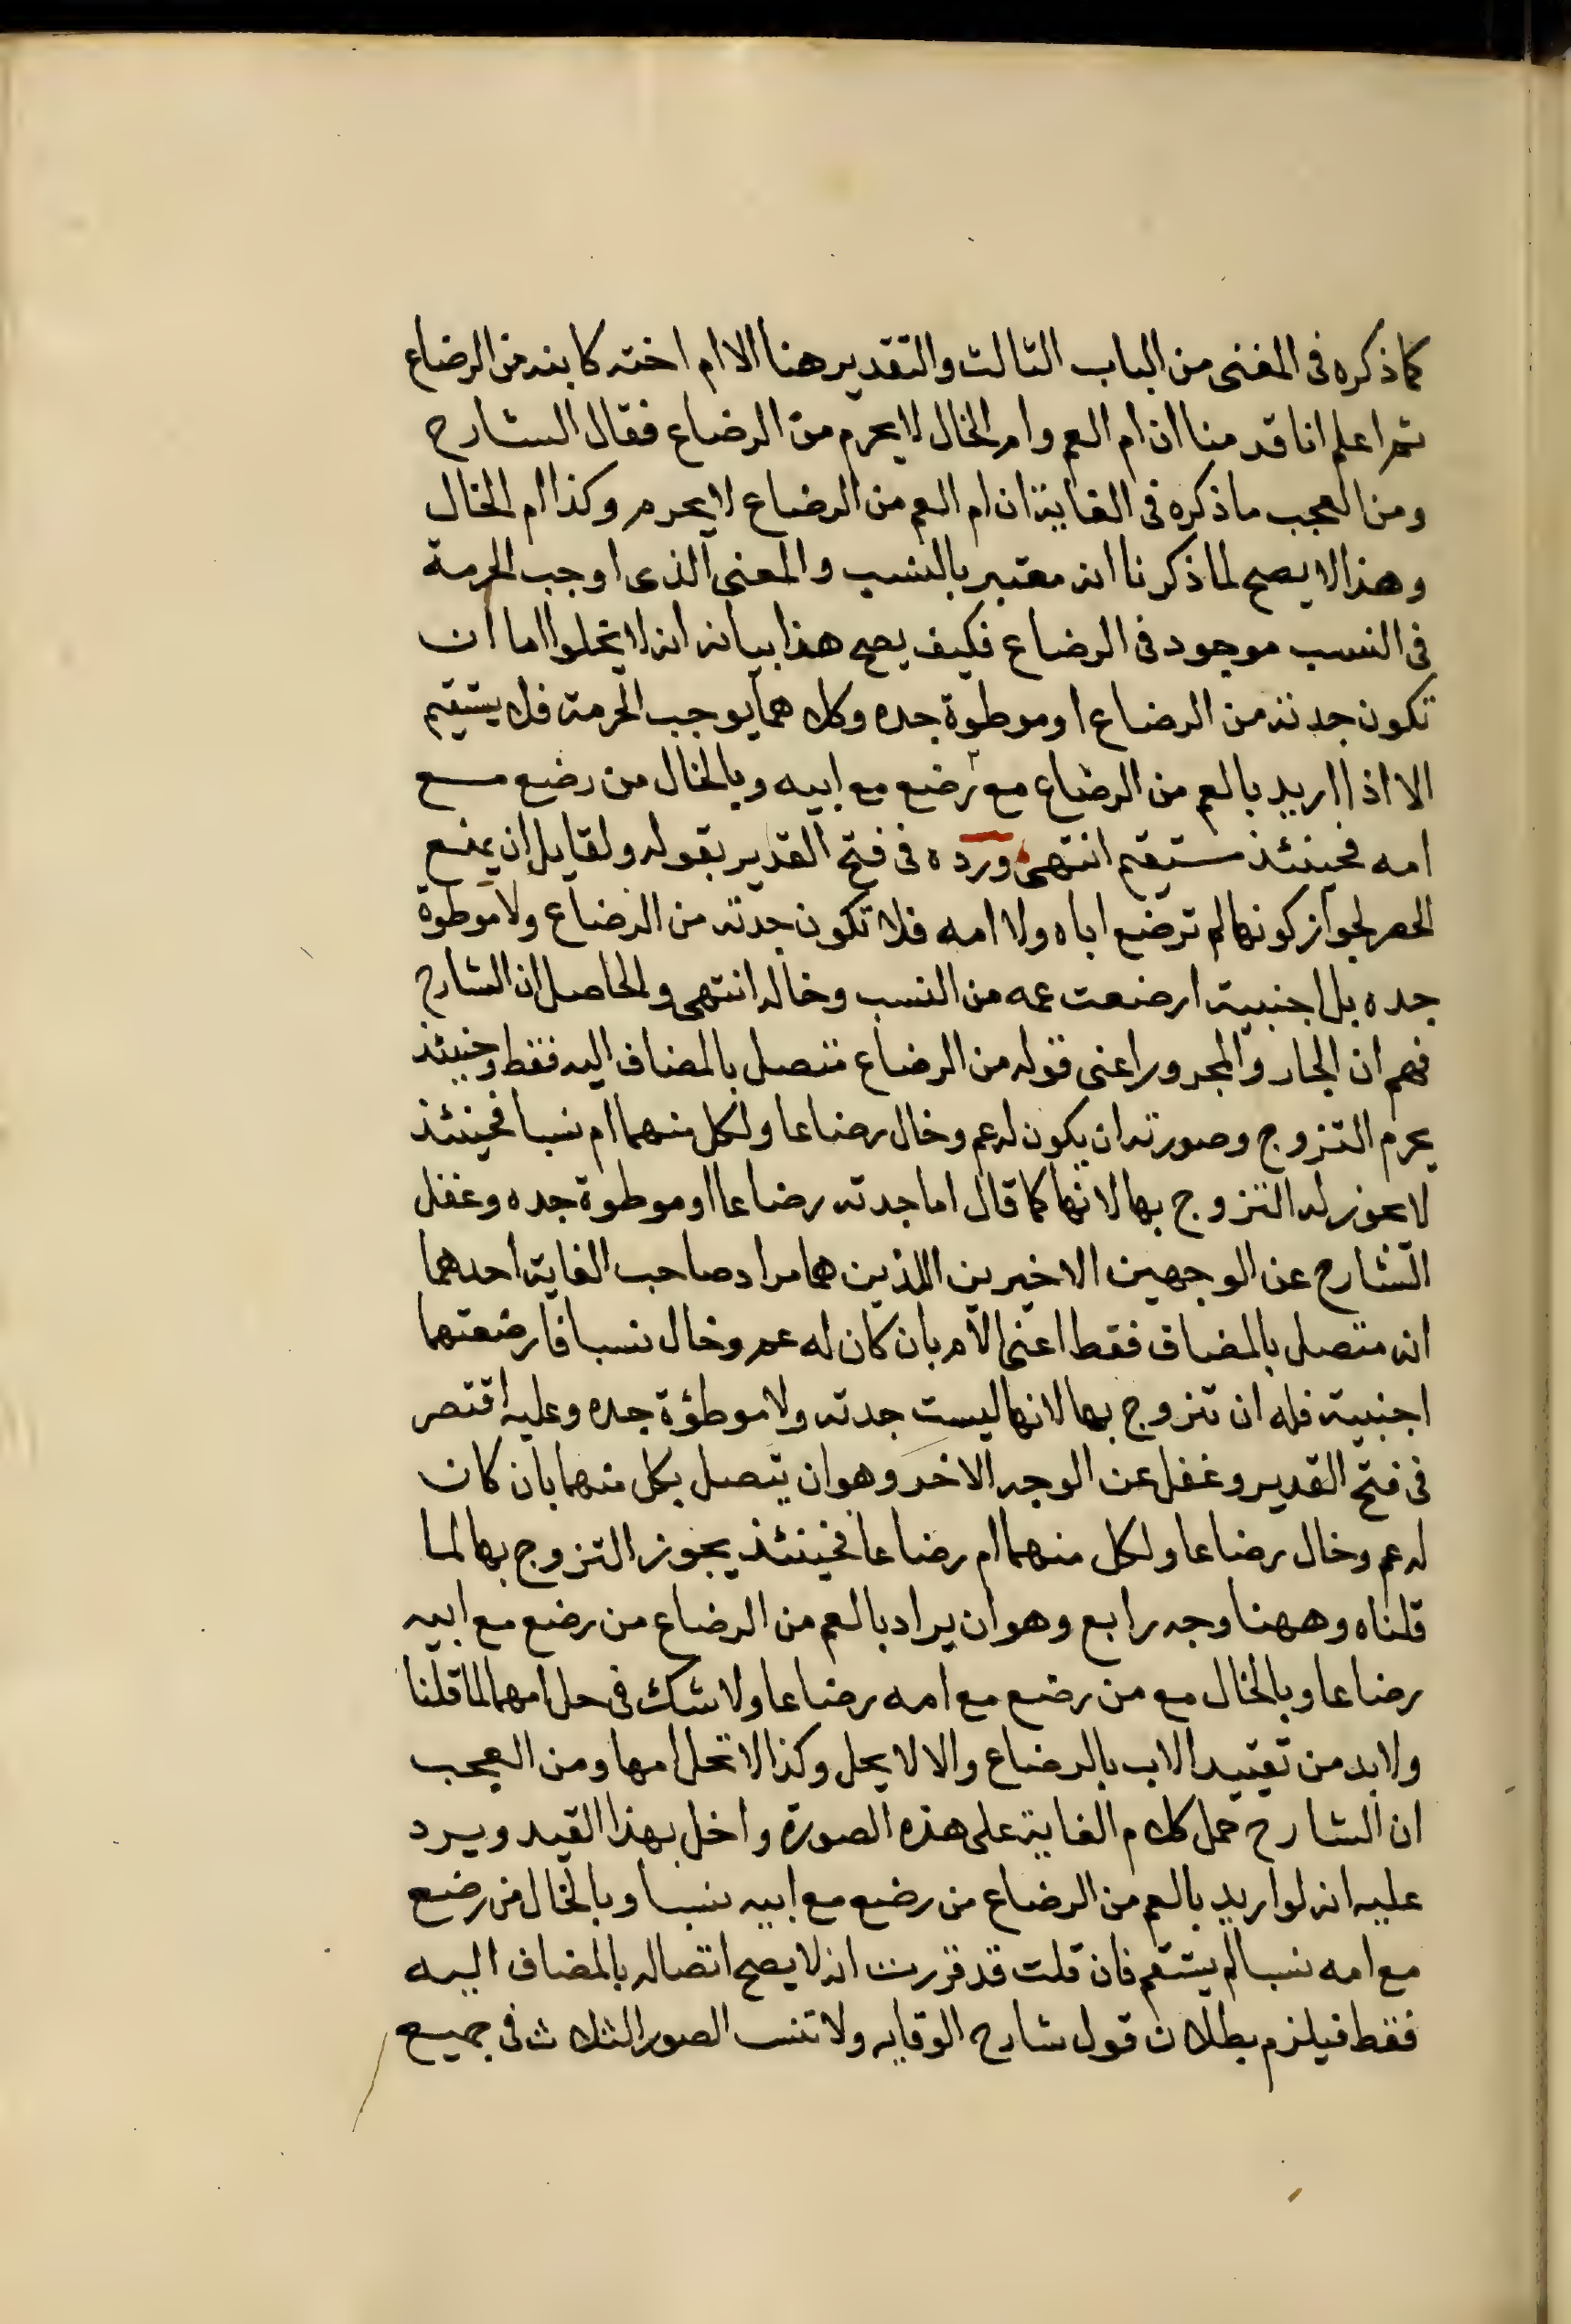 كما ذكره فى المغنى من الباب الثالث والتقدير هنا الا ام اخته كابنه من الرضاع
ثم اعلم انا قد منا ان ام العم وام الخال لا يحرم من الرضاع فقال الشارح
ومن العجب ما ذكره فى الغاية ان ام العم من الرضاع لا يحرم وكذا ام الخال
وهذا لا يصح لما ذكرنا انه معتبر بالنسب والمعنى الذى اوجب الحرمة
فى النسب موجود فى الرضاع فكيف يصح هذا بيانه انه لا يخلوا اما ان
تكون جدته من الرضاع او موطوة جده وكلاهما يوجب الحرمة فلا يستقيم
الا اذا اريد بالعم من الرضاع مع رضع مع ابيه وبالخال من رضع مع
امه فحينئذ مستقيم انتهى ورده فى فتح القدير بقوله ولقايل ان يمنع
الحصر لجواز كونها لم ترضع اباه ولا امه فلا تكون جدته من الرضاع ولا موطوة
جده بل اجنبية ارضعت عمه من النسب وخاله انتهى والحاصل ان الشارح
فهم ان الجار والمجرور اعنى قوله من الرضاع متصل بالمضاف اليه فقط وحينئذ
يحرم التزوج وصورته ان يكون له عم وخال رضاعا ولكل منهما ام نسبا فحينئذ
لا يجوز له التزوج بها لانها كما قال اما جدته رضاعا او موطوة جده وغفل
الشارح عن الوجهين الاخيرين اللذين هما مراد صاحب الغاية احدهما
انه متصل بالمضاف فقط اعنى الام بان كان له عم وخال نسبا فارضعتهما
اجنبية فله ان تزوج بها لانها ليست جدته ولا موطؤة جده وعليه اقتصر
فى فتح القدير وغفل عن الوجه الاخر وهو ان يتصل بكل منهما بان كان
له عم وخال رضاعا ولكل منهما ام رضاعا فحينئذ يجوز التزوج بها لما
قلناه وههنا وجه رابع وهو ان يراد بالعم من الرضاع من رضع مع ابيه
رضاعا وبالخال مع من رضع مع امه رضاعا ولا شك فى حل امهما لما قلنا
ولا بد من تقييد الاب بالرضاع والا لا يحل وكذا لا تحل امها ومن العجب
ان الشارح حمل كلام الغاية على هذه الصورة واخل بهذا القيد ويرد
عليه انه لو اريد بالعم من الرضاع من رضع مع ابيه نسبا وبالخال من رضع
مع امه نسبا لم يستقم فان قلت قد قررت انه لا يصح اتصاله بالمضاف اليه
فقط فيلزم بطلان قول شارح الوقايه ولا تنس الصور الثلاث فى جميع